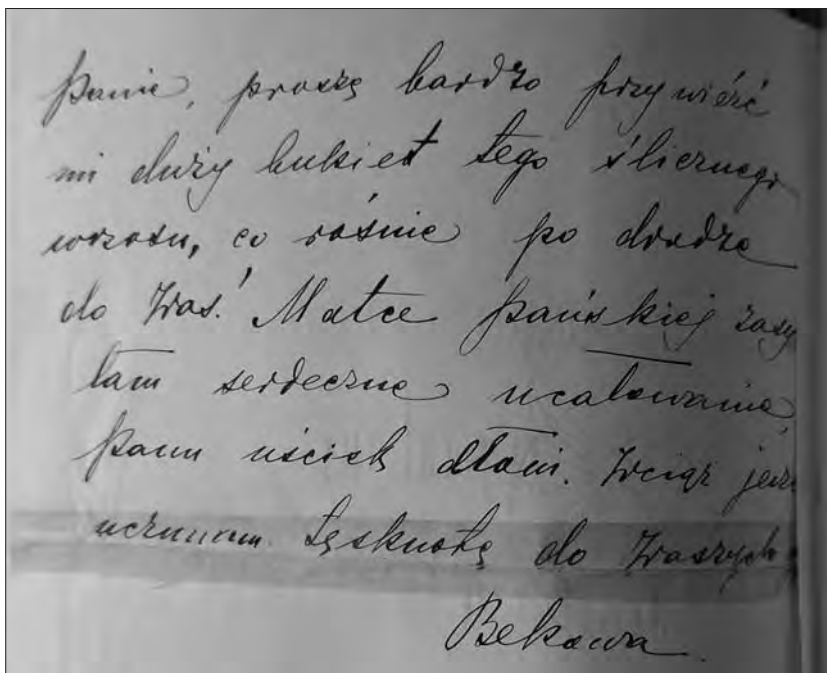 Panie, proszę bardzo przywieźć
mi duży bukiet tego ślicznego
wrzosu, co rośnie po drodze
do Was! Matce Pańskiej zasy
łam serdeczne ucałowania,
Panu uścisk dłoni. Wciąż
tęsknotę do Waszych
Bekowa.